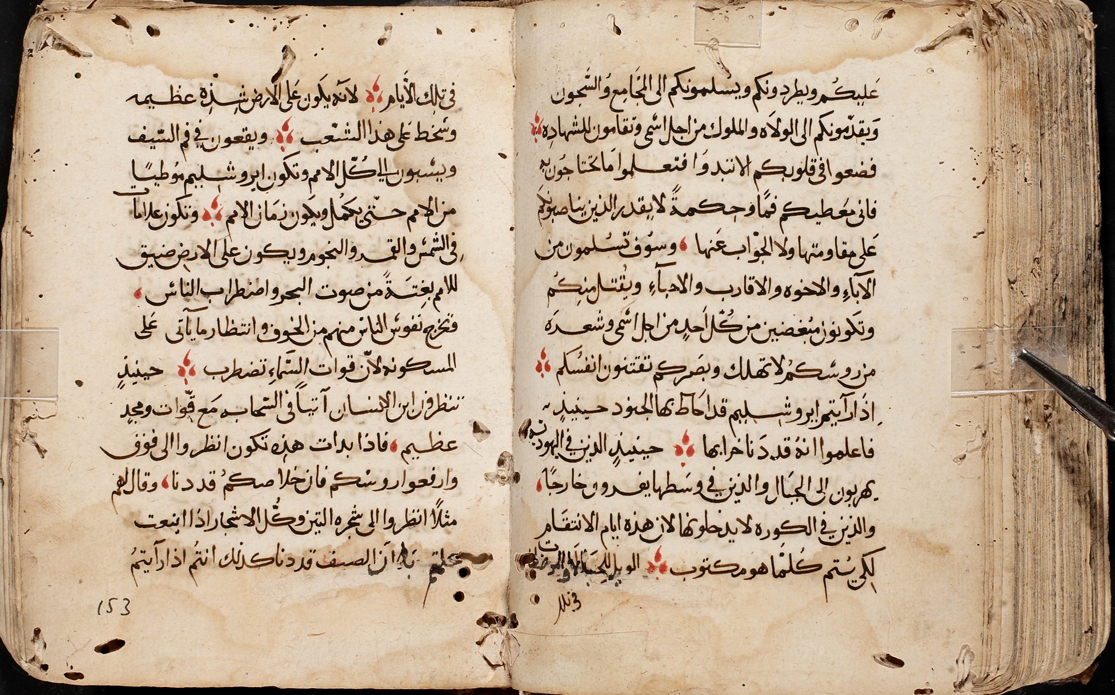 عَليكُم ويطردونكم ويسلمونكم الى المجَامع وَالسَّجون
وَيقدّمونكم الى الولاه والملوك من اجل اسْمى وتقامون للشهاده
فضعوا فى قلوبكم الا تبدوَا فتعلموا مَا تحتاجون به
فانى مَعطيكم فمًا وحكمةً لا يقدر الذين يناصبونكم
عَلى مقاومتها ولا الجوَاب عَنها وسوْف تسلمون من
الآباءِ والاخوه والاقارب والاحبآءِ ويقتل منكم
وتكونون مبْغضين من كُلّ اَحدٍ من اجل اسْمى وشعرَه
من روسكم لا تهلك وبصَبركم تقتنون انفسُكم
اِذا رآيتم ايروشليم قد احَاط بها الجنود حينيذٍ
فاعلموا انهُ قد دَنا خرابها حينيذٍ الذين فى اليهوديه
يهربون الى الجبَال والذين فى وَسَطها يفرون خارجًا
والذين فى الكوره لا يدخلونها لان هذه ايام الانتقام
لكى يتم كُلّما هو مكتوب الويل للحبالا والمرضعات
فى تلك الاَيام لانه يكون على الارض شدّه عظيمه
وسَخط عَلى هذا الشعْب ويقعون فى فم السَّيف
ويسْبون الى كُلّ الامم وتكون ايروشليم مَوطيًا
من الامم حتّى يكمل ويكون زمَان الامم وتكون علامات
فى الشمْس والقمَر والنجوم ويكون على الارض ضيق
للامم بغتةً من صوت البحر واضطراب النّاس
وتخرج نفوس الناسْ منهم من الخوف وانتظار ما ياتى عَلى
المسكونه لانّ قوات السّماءِ تضطرب حينيذٍ
تنظرون ابن الانسان آتياً فى السّحاب مَع قوّات ومجدٍ
عظيم فاذا بدات هذه تكون انظروا الى فوْق
وارفعوا روسْكم فان خلاصكم قد دنا وقال لهم
مثلاً انظروا الى شجره التين وكُلّ الاشجار اذا اينعت
انّ الصيف قد دنا كذلك انتُم اذا رآيتمُ
153